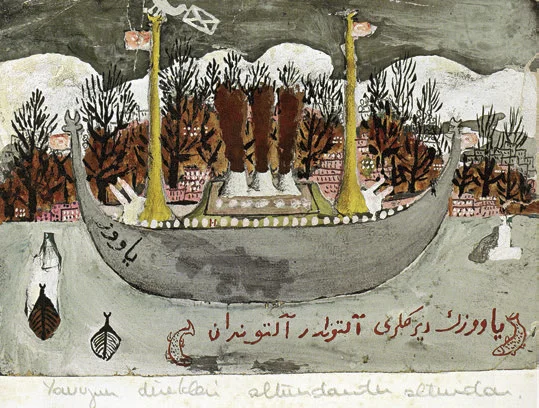 ياووز
ياووزڭ ديركلرى آلتوندر آلتوندان
Yavuzun direkleri altundandır altundan.